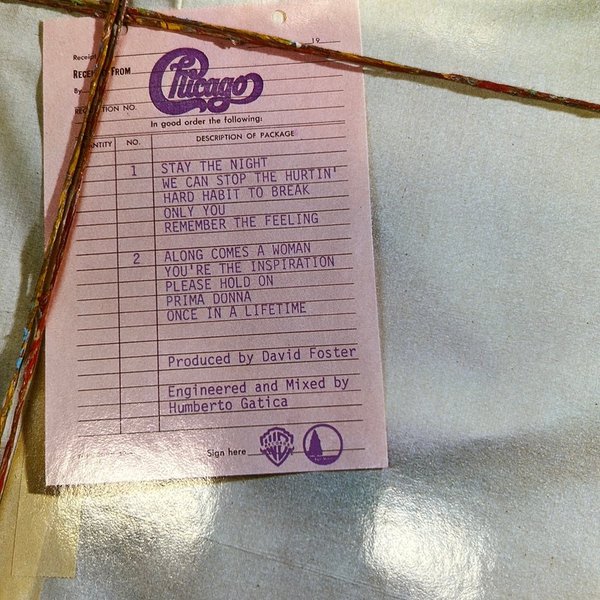 19
Receipt
RECEIVED FROM
Chicago
By
RECEPTION NO.
In good order the following:
QUANTITY NO. DESCRIPTION OF PACKAGE
1 STAY THE NIGHT
WE CAN STOP THE HURTIN'
HARD HABIT TO BREAK
ONLY YOU
REMEMBER THE FEELING
2 ALONG COMES A WOMAN
YOU'RE THE INSPIRATION
PLEASE HOLD ON
PRIMA DONNA
ONCE IN A LIFETIME
Produced by David Foster
Engineered and Mixed by
Humberto Gatica
Sign here